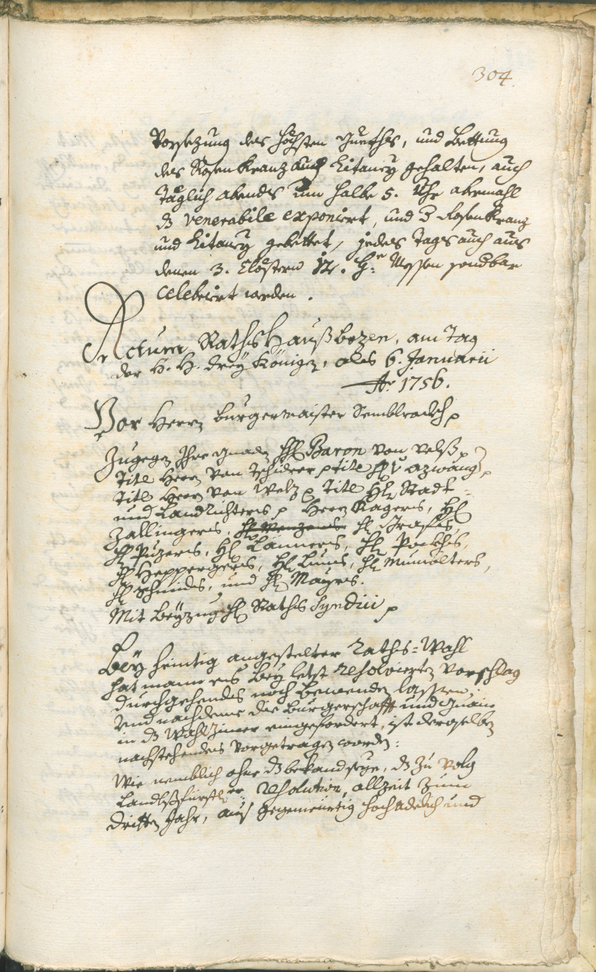 304.
Vorsezung des höchsten Gueths, und Bettung
des Rosenkranz und Litaney gehalten, auch
täglich abends um halbe 5. Uhr abermahl
dz venerabile exponirt, und 3 Rosenkranz
und Litaney gebettet, jedes tags auch aus
denen 3. Clöstern 12. H: Messen sonderbar
celebriert werden.
Actum Raths Hauß Bozen, am Tag
der H. H. drey Königen, als 6. Januarii
Ao: 1756.
Vor Herrn Burgermaister Semblrockh p
Zugegen Ihro Gnaden H: Baron von Velß p
Titl Herrn von Tschiderer p title
Titl Herrn von Welz p Titl H: Stadt-
und Landtrichters p Herrn Kagers, H:
Zallingers, H: Grafens,
H: Puzers, H: Lanners, H:
H: Heppergers, H: H: Mumelters,
H: Schmids, und H: Mayrs.
Mit Beyzug H: Raths Syndici p
Bey heuntig angestelter Raths-Wahl
hat mann es bey letst resolvierten Vorschlag
durchgehends noch bewenden lassen,
und nachdeme die Burgerschafft und Gmain
in dz Wahl Zimer eingefordert, ist derselben
nachstehendes vorgetragen worden:
Wie nemblich ohne dz bekandt seye, dz zu volg
Landtsfürstl: er: resolution, allzeit zum
dritten Jahr, auß gegenwertig hochadelich und